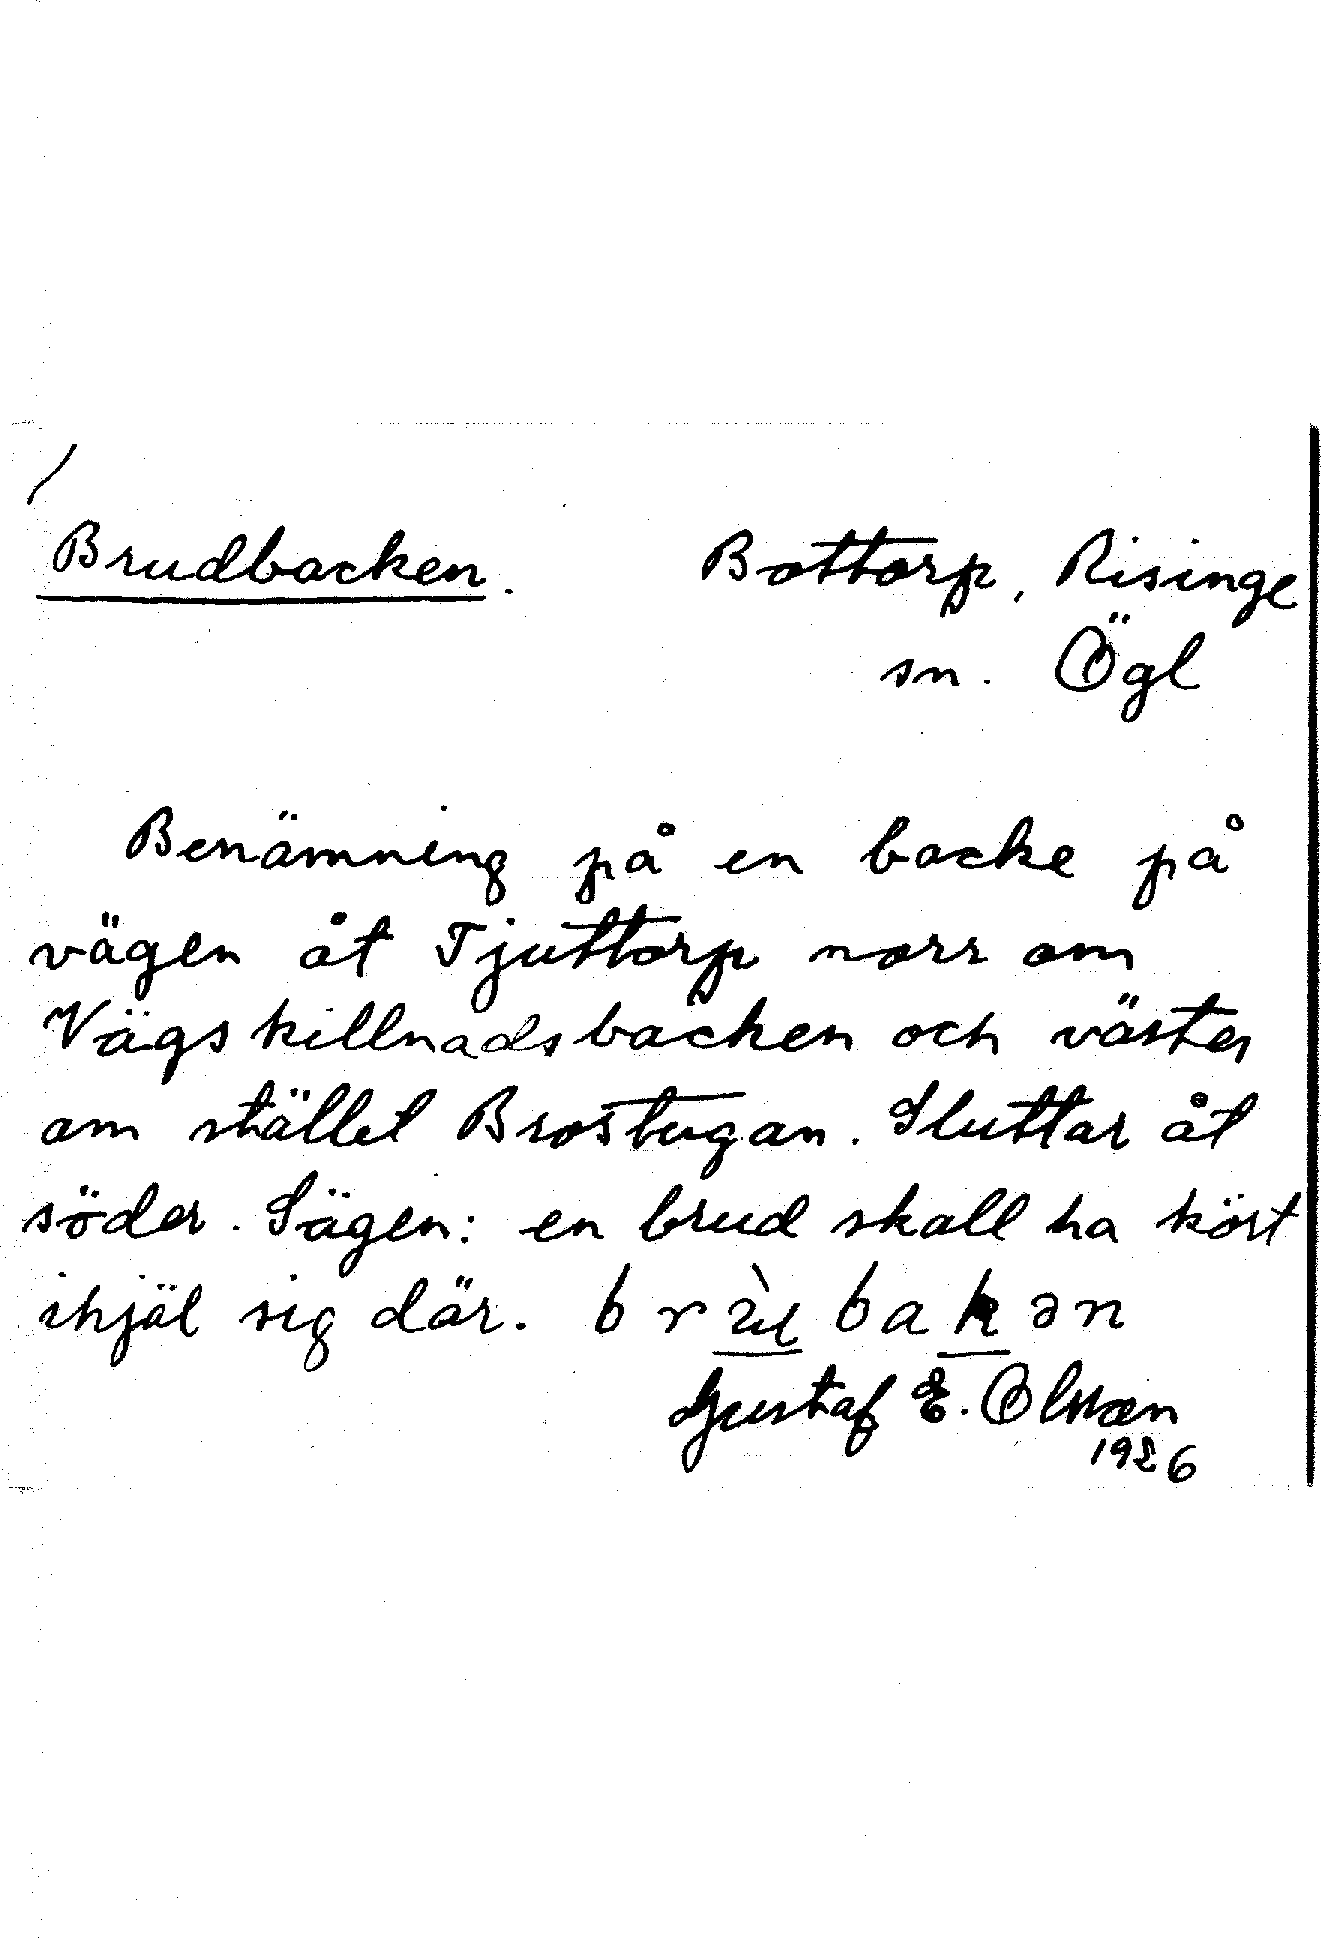 Brudbacken. Bottorp, Risinge
sn. Ögl
Benämning på en backe på
vägen åt Tjuttorp norr om
Vägskillnadsbacken och väster
om stället Brostugan. Sluttar åt
söder. Sägen: en brud skall ha kört
ihjäl sig där.
Gustaf E. Olsson
1926